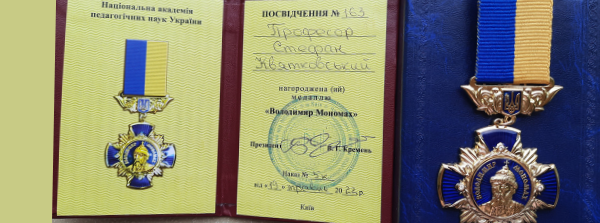 Національна академія
педагогічних наук України
ПОСВІДЧЕННЯ № 163
Професор
Стефан
Квятковський
нагороджена (ий)
медаллю
«Володимир Мономах»
Президент
В. Г. Кремень
Наказ №
від «13» 20 23 р.
Київ
ВОЛОДИМИР МОНОМАХ